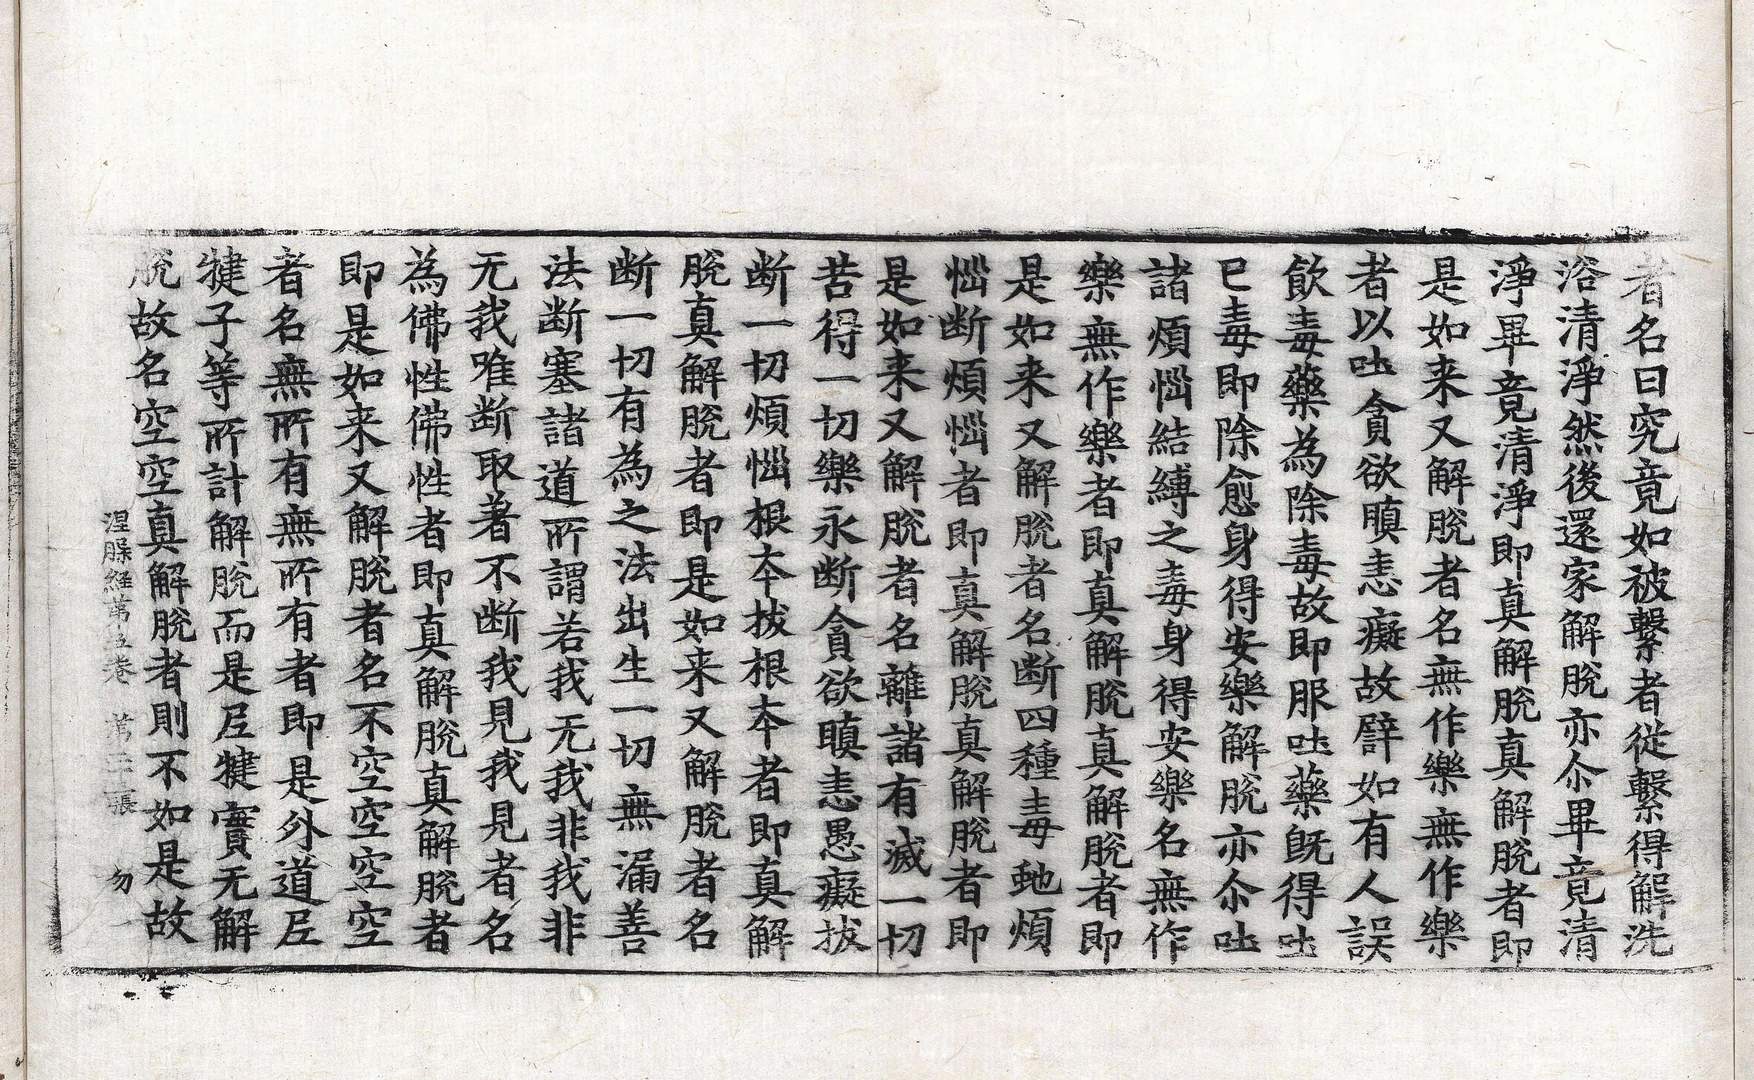 者名曰究竟如被繫者從繫得解洗
浴清淨然後還家解脫亦尒畢竟清
淨畢竟清淨即真解脫真解脫者即
是如来又解脫者名無作樂無作樂
者以吐貪欲瞋恚癡故譬如有人誤
飲毒藥為除毒故即服吐藥既得吐
已毒即除愈身得安樂解脫亦尒吐
諸煩惱結縛之毒身得安樂名無作
樂無作樂者即真解脫真解脫者即
是如来又解脫者名断四種毒虵煩
惱断煩惱者即真解脫真解脫者即
是如来又解脫者名離諸有滅一切
苦得一切樂永断貪欲瞋恚愚癡拔
断一切煩惱根本拔根本者即真解
脫真解脫者即是如来又解脫者名
断一切有為之法出生一切無漏善
法断塞諸道所謂若我无我非我非
无我唯断取著不断我見我見者名
為佛性佛性者即真解脫真解脫者
即是如来又解脫者名不空空空空
者名無所有無所有者即是外道尼
犍子等所計解脫而是尼犍實无解
脫故名空空真解脫者則不如是故
涅槃經第五卷 第二十二張 勿一